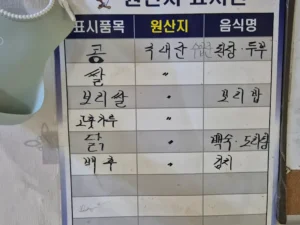 원산지 표시판
표시품목 원산지 음식명
콩 국내산 콩 · 두부
쌀 〃
보리쌀 〃 보리밥
고춧가루 〃
닭 〃 백숙 · 도리탕
배추 〃 김치